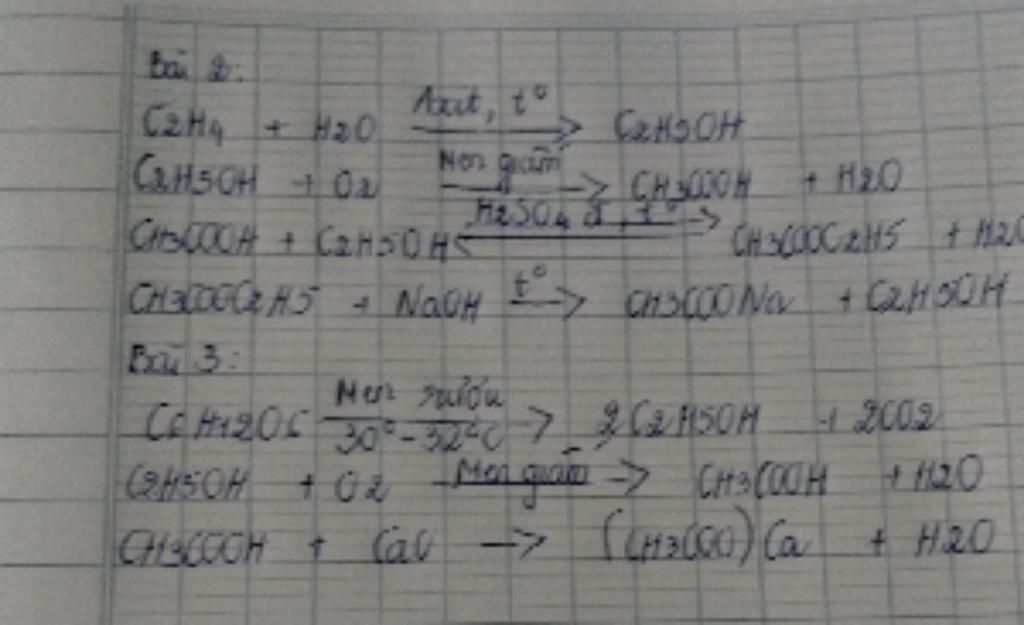 Bài 2:
C2H4 + H2O Axit, t° → C2H5OH
C2H5OH + O2 Men giấm → CH3COOH + H2O
CH3COOH + C2H5OH H2SO4 đ, t° ⇌ CH3COOC2H5 + H2O
CH3COOC2H5 + NaOH t° → CH3COONa + C2H5OH
Bài 3:
C6H12O6 Men rượu 30° - 32°C → 2C2H5OH + 2CO2
C2H5OH + O2 Men giấm → CH3COOH + H2O
CH3COOH + CaO → (CH3COO)Ca + H2O